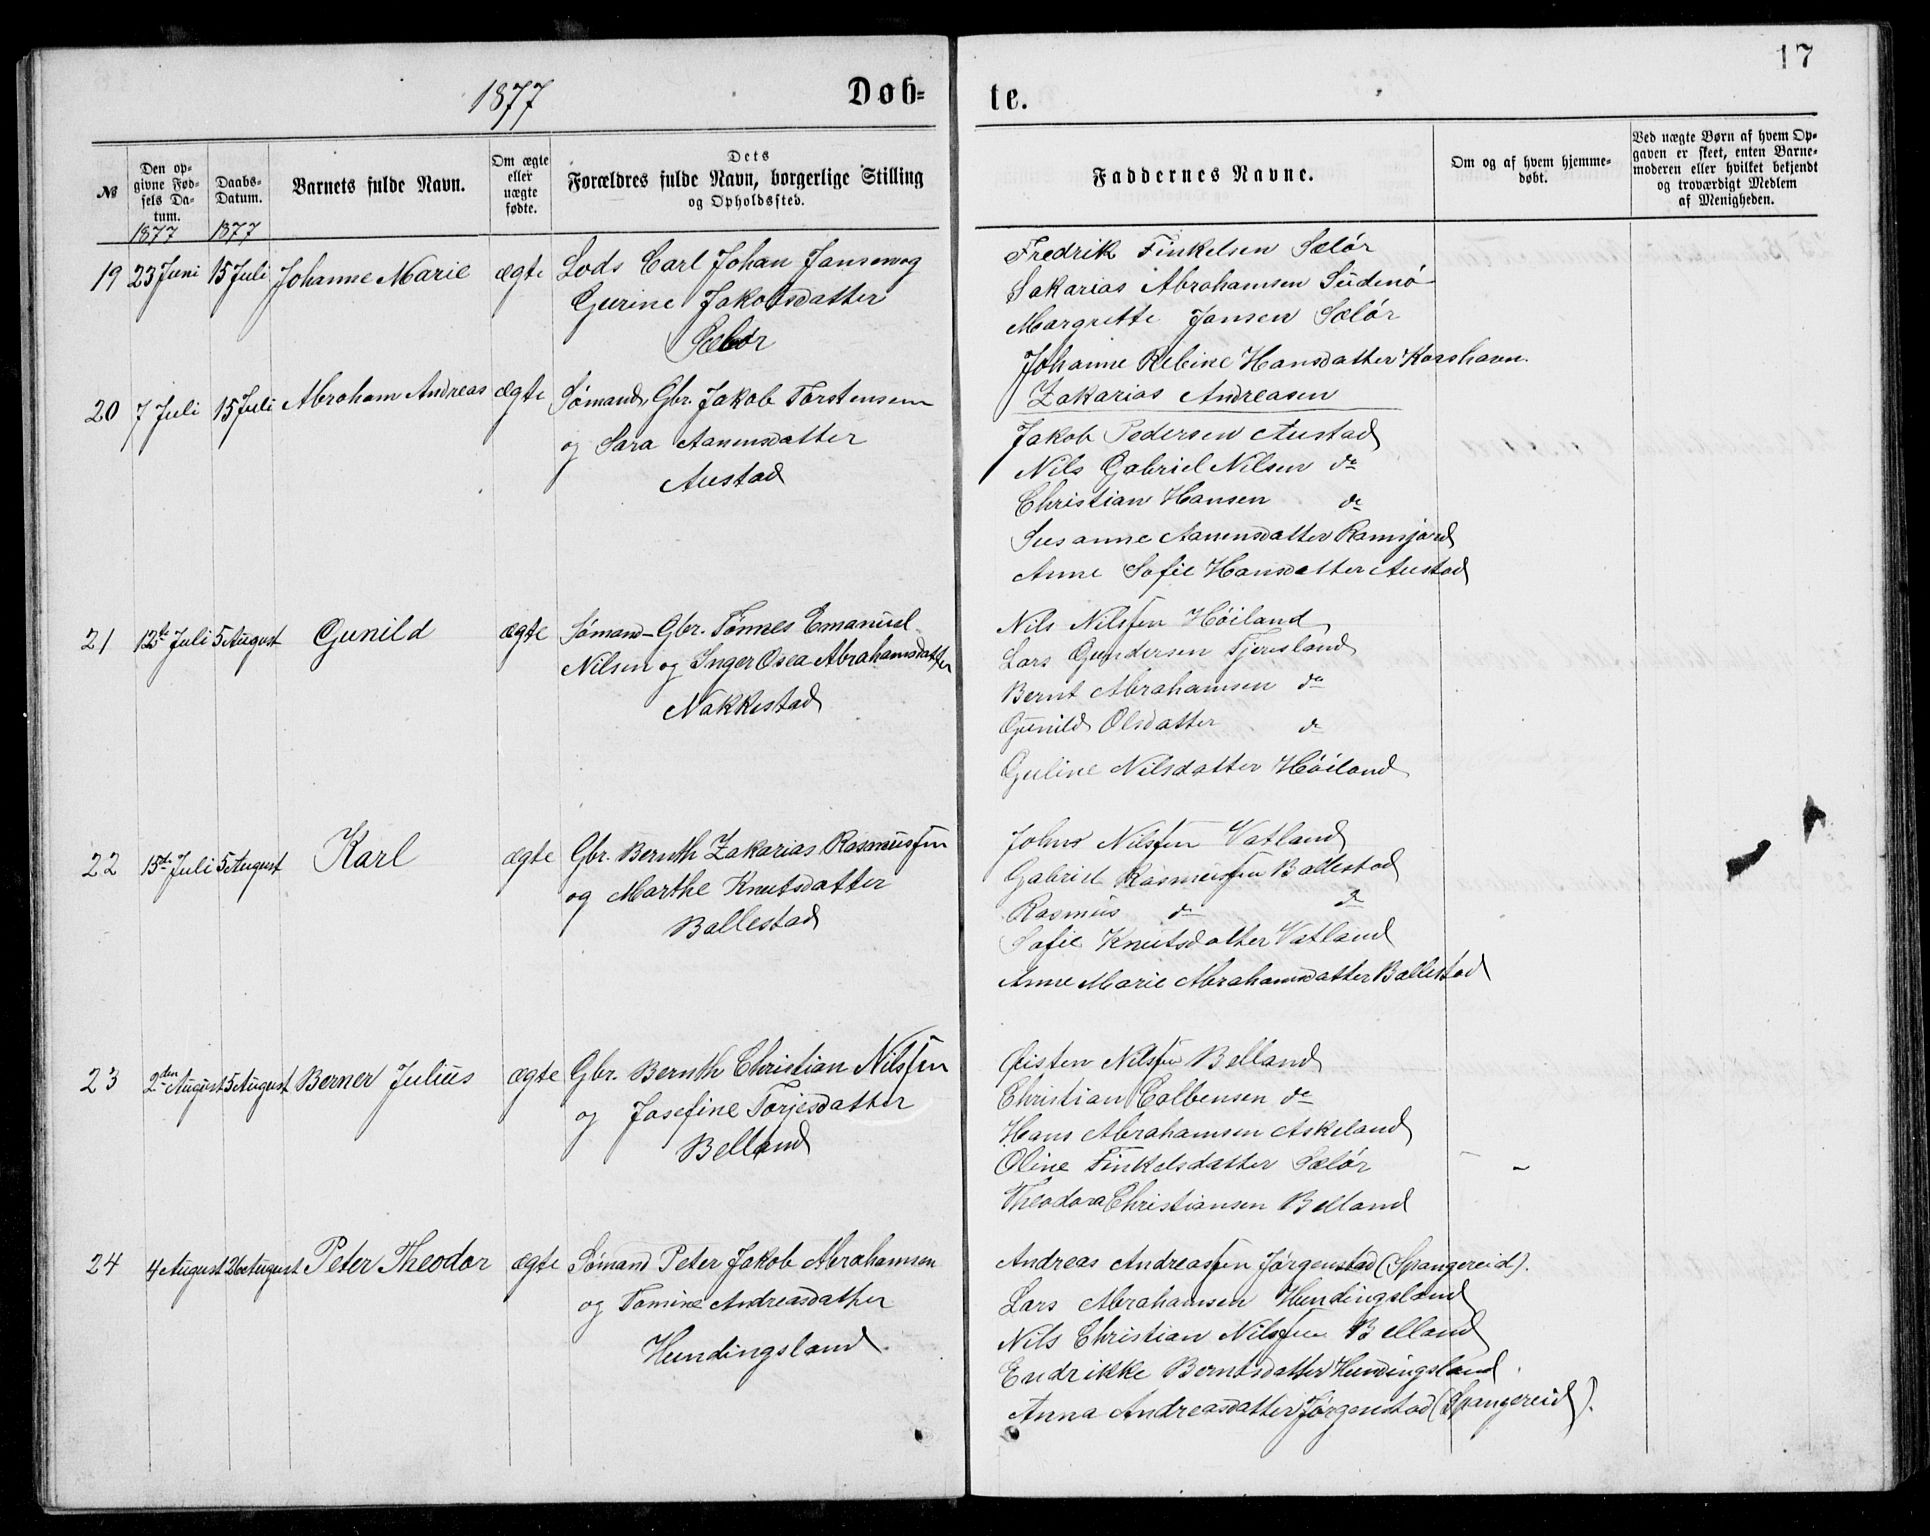 17
1877 Døb- te.
№
Den opgivne Fødsels Datum.
1877
Daabs-Datum.
1877
Barnets fulde Navn.
Om ægte eller uægte fødte.
Dets Forældres fulde Navn, borgerlige Stilling og Opholdssted.
Faddernes Navne.
Om og af hvem hjemmedøbt.
Ved uægte Børn af hvem Opgaven er skeet, enten Barnemoderen eller hvilket bekjendt og troværdigt Medlem af Menigheden.
19 23 Juni 15 Juli Johanne Marie ægte Lods Carl Johan Jansen og
Gurine Jakobsdatter
Selør
Fredrik Finkelsen Selør
Sakarias Abrahamsen Südenø
Margrette Jansen Selør
Johanne Rebine Hansdatter Korshavn.
Zakarias Andreasen
20 7 Juli 15 Juli Abraham Andreas ægte Sømand, Gbr. Jakob Torstensen
og Sara Aanensdatter
Austad
Jakob Pedersen Austad
Nils Gabriel Nilsen do
Christian Hansen do
Susanne Aanensdatter Ramsjord
Anne Sofie Hansdatter Austad
21 12te Juli 5 August Gunild ægte Sømand-Gbr. Tønnes Emanuel
Nilsen og Inger Osea Abrahamsdatter
Nakkestad
Nils Nilssen Høiland
Lars Gundersen Tjersland
Bernt Abrahamsen do
Gunild Olsdatter do
Guline Nilsdatter Høiland
22 15de Juli 5 August Karl ægte Gbr. Bernth Zakarias Rasmussen
og Marthe Knutsdatter
Ballestad
Johns Nilssen Vatland
Gabriel Rasmussen Ballestad
Rasmus do do
Sofie Knutsdatter Vatland
Anne Marie Abrahamsdatter Ballestad
23 2den August 5 August Berner Julius ægte Gbr. Bernth Christian Nilssen
og Josefine Torjesdatter
Belland
Østen Nilssen Belland
Christian Colbensen do
Hans Abrahamsen Askeland
Oline Finkelsdatter Selør
Theodora Christiansen Belland
24 4 August 26 August Peter Theodor ægte Sømand Peter Jakob Abrahamsen
og Tomine Andreasdatter
Hundingsland.
Andreas Andreassen Jørgenstad (Spangereid).
Lars Abrahamsen Hundingsland
Nils Christian Nilssen Belland
Endrikke Berntsdatter Hundingsland.
Anna Andreasdatter Jørgenstad (Spangereid).